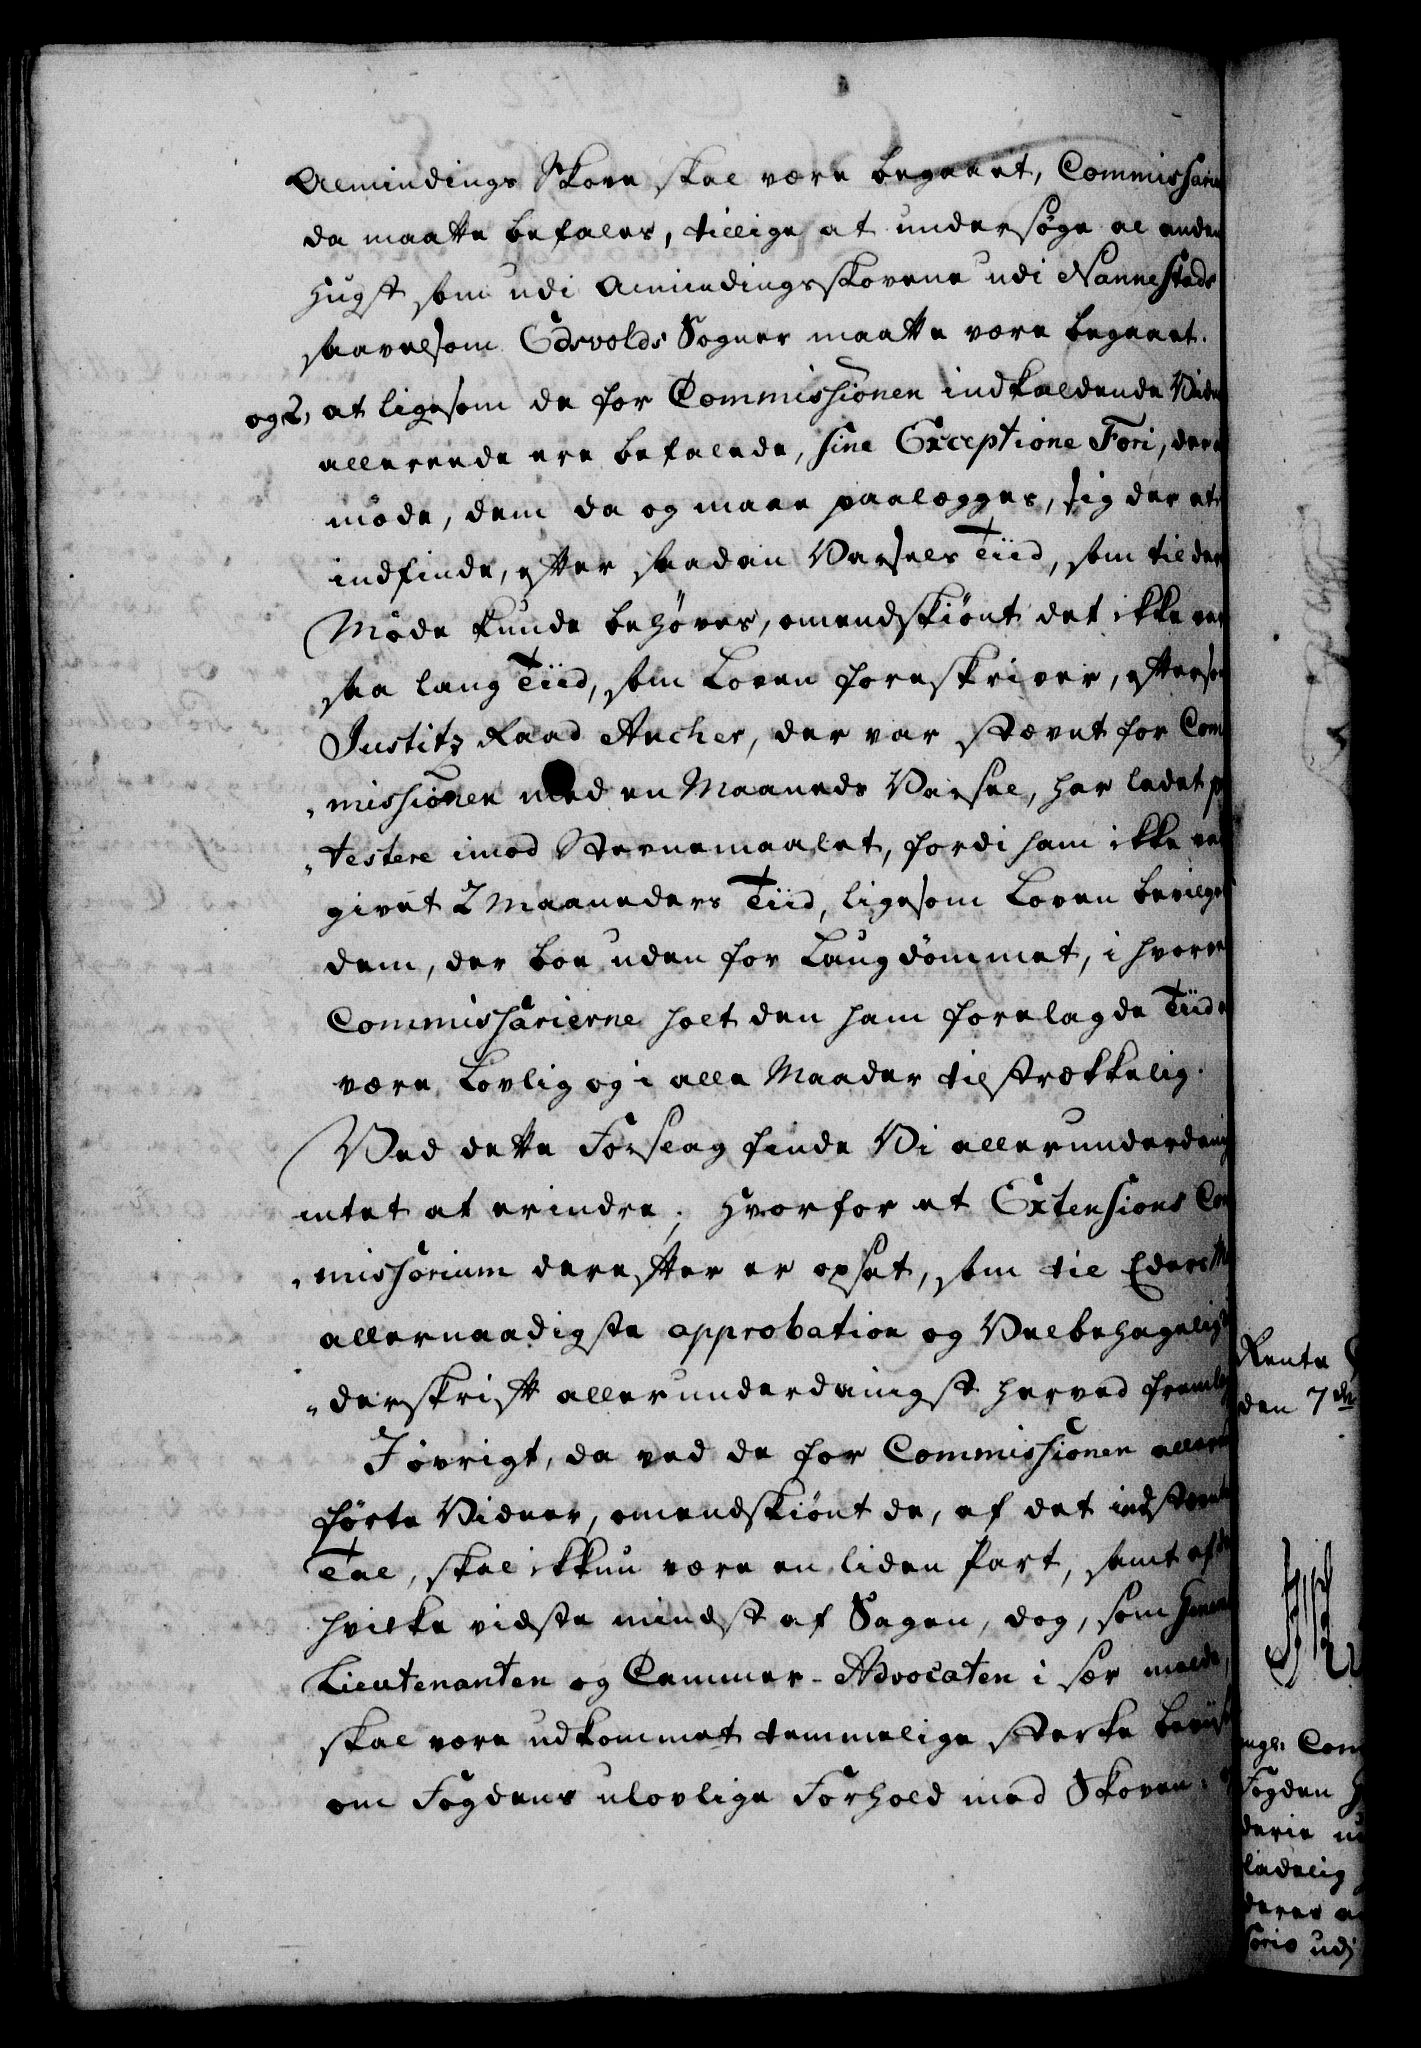 Almindings Skove skal være begaaet, Commissarie
da maatte befales, tillige at undersøge al anden
Hugst som udi Almindingsskovene udi Nannestads
saavelsom Edsvolds Sogner maatte være begaaet.
og 2, at ligesom de for Commissionen indkaldende Vidn
allereede ere befalede, sine Exceptione Fori, der
møde, dem da og maae paalegges, sig der at
indfinde, efter saadan Varsels Tiid, som til der
Møde kunde behøves, omendskiønt det ikke var
saa lang Tiid, som Loven foreskriver, efterso
Justitz Raad Ancher, der var stævnt for Com
missionen med en Maaneds Varsel, har ladet p
testere imod Stevnemaalet, fordi ham ikke va
givet 2 Maaneders Tiid, ligesom Loven bevilger
dem, der boe uden for Laugdømmet, i hvorve
Commissarierne holt den ham forelagde Tiid
være Lovlig og i alle Maader tilstrækkelig.
Ved dette Forslag finde Vi allerunderdanig
intet at erindre; hvorfor et Extensions Com
missorium derefter er opsat, som til Eders M
allernaadigste approbation og Velbehagelig
derskrift allerunderdanigst herved fremle
I øvrigt, da ved de for Commissionen allere
førte Vidner, omendskiønt de, af det indstevnte
Tal, skal ikkun være en liden Part, samt af d
hvilke vidste mindst af Sagen, dog, som General
Lieutenanten og Cammer-Advocaten i sær melde,
skal være udkommet temmelige sterke beviis
om Fogdens ulovlige Forhold med Skoven
Rente
den 7de
Com
Fogden
derie
ladelig
deres
sorio udj